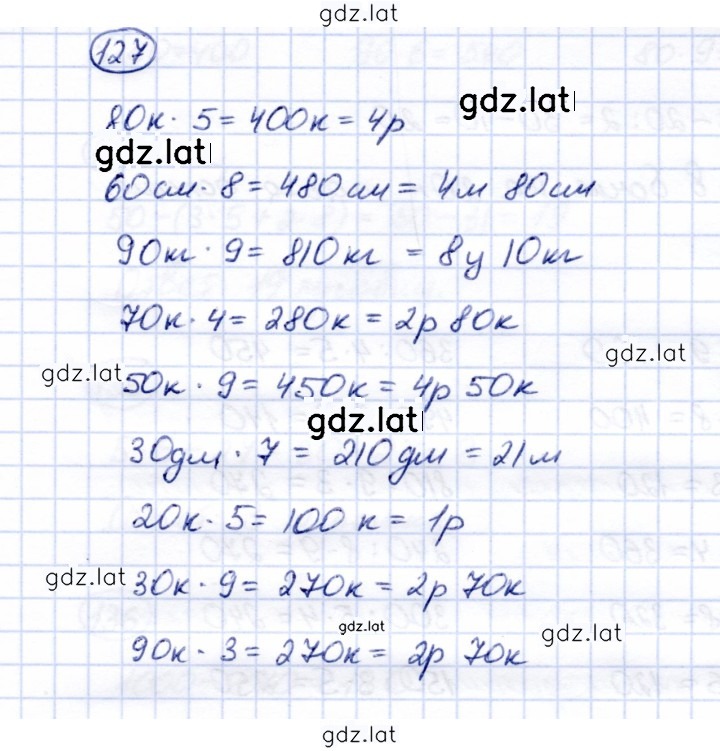 gdz.lat
127
80к · 5 = 400к = 4р
gdz.lat
gdz.lat
60см · 8 = 480см = 4м 80см
90кг · 9 = 810кг = 8ц 10кг
70к · 4 = 280к = 2р 80к
gdz.lat
gdz.lat
50к · 9 = 450к = 4р 50к
gdz.lat
30дм · 7 = 210дм = 21м
20к · 5 = 100к = 1р
gdz.lat
30к · 9 = 270к = 2р 70к
gdz.lat
gdz.lat
90к · 3 = 270к = 2р 70к
gdz.lat